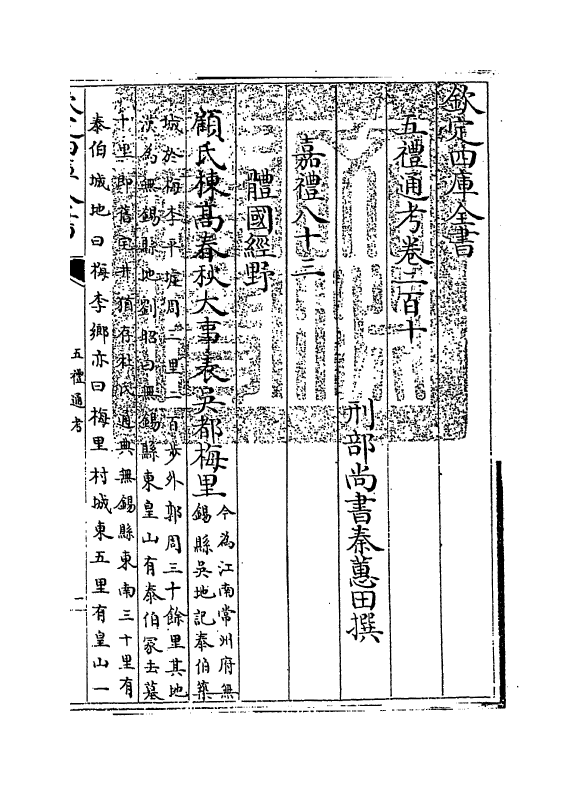 欽定四庫全書
五禮通考卷二百十
刑部尚書秦蕙田撰
嘉禮八十三
體國經野
顧氏棟高春秋大事表吳都梅里
今為江南常州府無
錫縣吳地記泰伯築
城於梅李平墟周三里二百步外郭周三十餘里其地
漢為無錫縣地劉昭曰無錫縣東皇山有泰伯冢去墓
十里即舊宅井猶存杜氏通典無錫縣東南三十里有
泰伯城地曰梅李鄉亦曰梅里村城東五里有皇山一
五禮通考
一